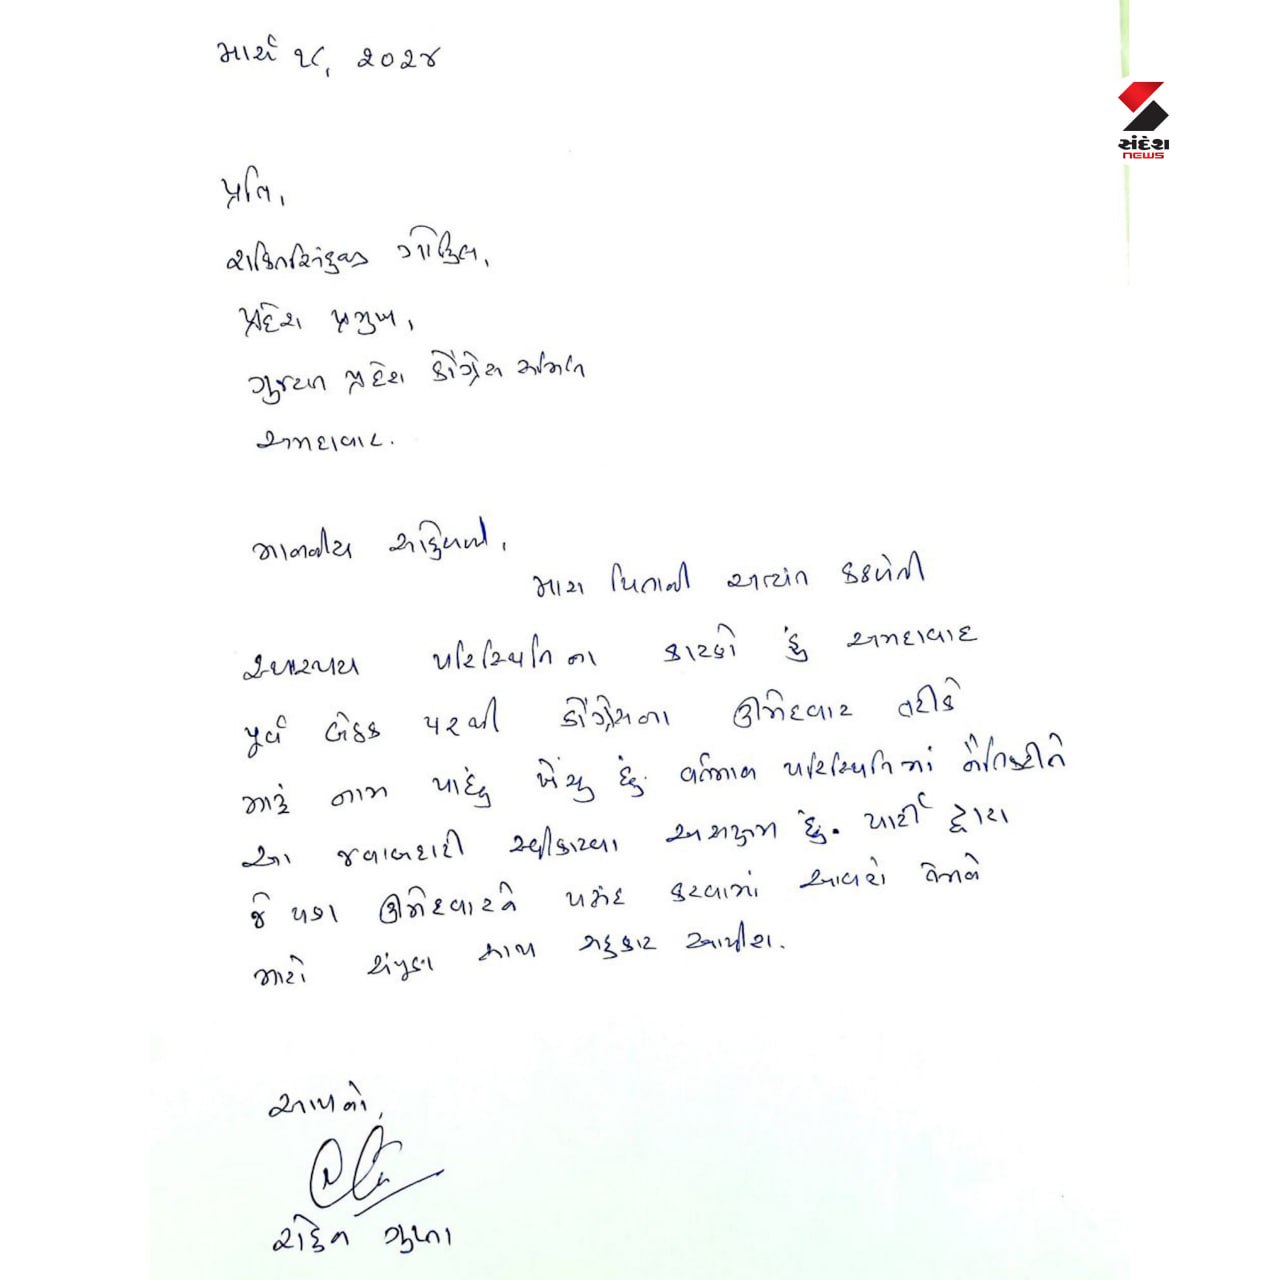 માર્ચ ૧૮, ૨૦૨૪
સંદેશ
NEWS
પ્રતિ,
શક્તિસિંહજી ગોહિલ,
પ્રદેશ પ્રમુખ,
ગુજરાત પ્રદેશ કોંગ્રેસ સમિતિ
અમદાવાદ.
માનનીય
મારા પિતાની અત્યંત કથળેલી
પરિસ્થિતિના કારણે હું અમદાવાદ
પૂર્વ બેઠક પરથી કોંગ્રેસના ઉમેદવાર તરીકે
મારું નામ પાછું ખેંચુ છું. વર્તમાન પરિસ્થિતિમાં
આ જવાબદારી સ્વીકારવા અસક્ષમ છું. પાર્ટી દ્વારા
જે પણ ઉમેદવારને પસંદ કરવામાં આવશે તેમને
માટે સંપુર્ણ સાથ સહકાર આપીશ.
આપનો,
રોહન ગુપ્તા